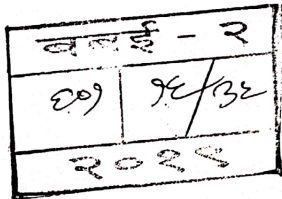 बबई - २
६०१ १६/३६
२०२१